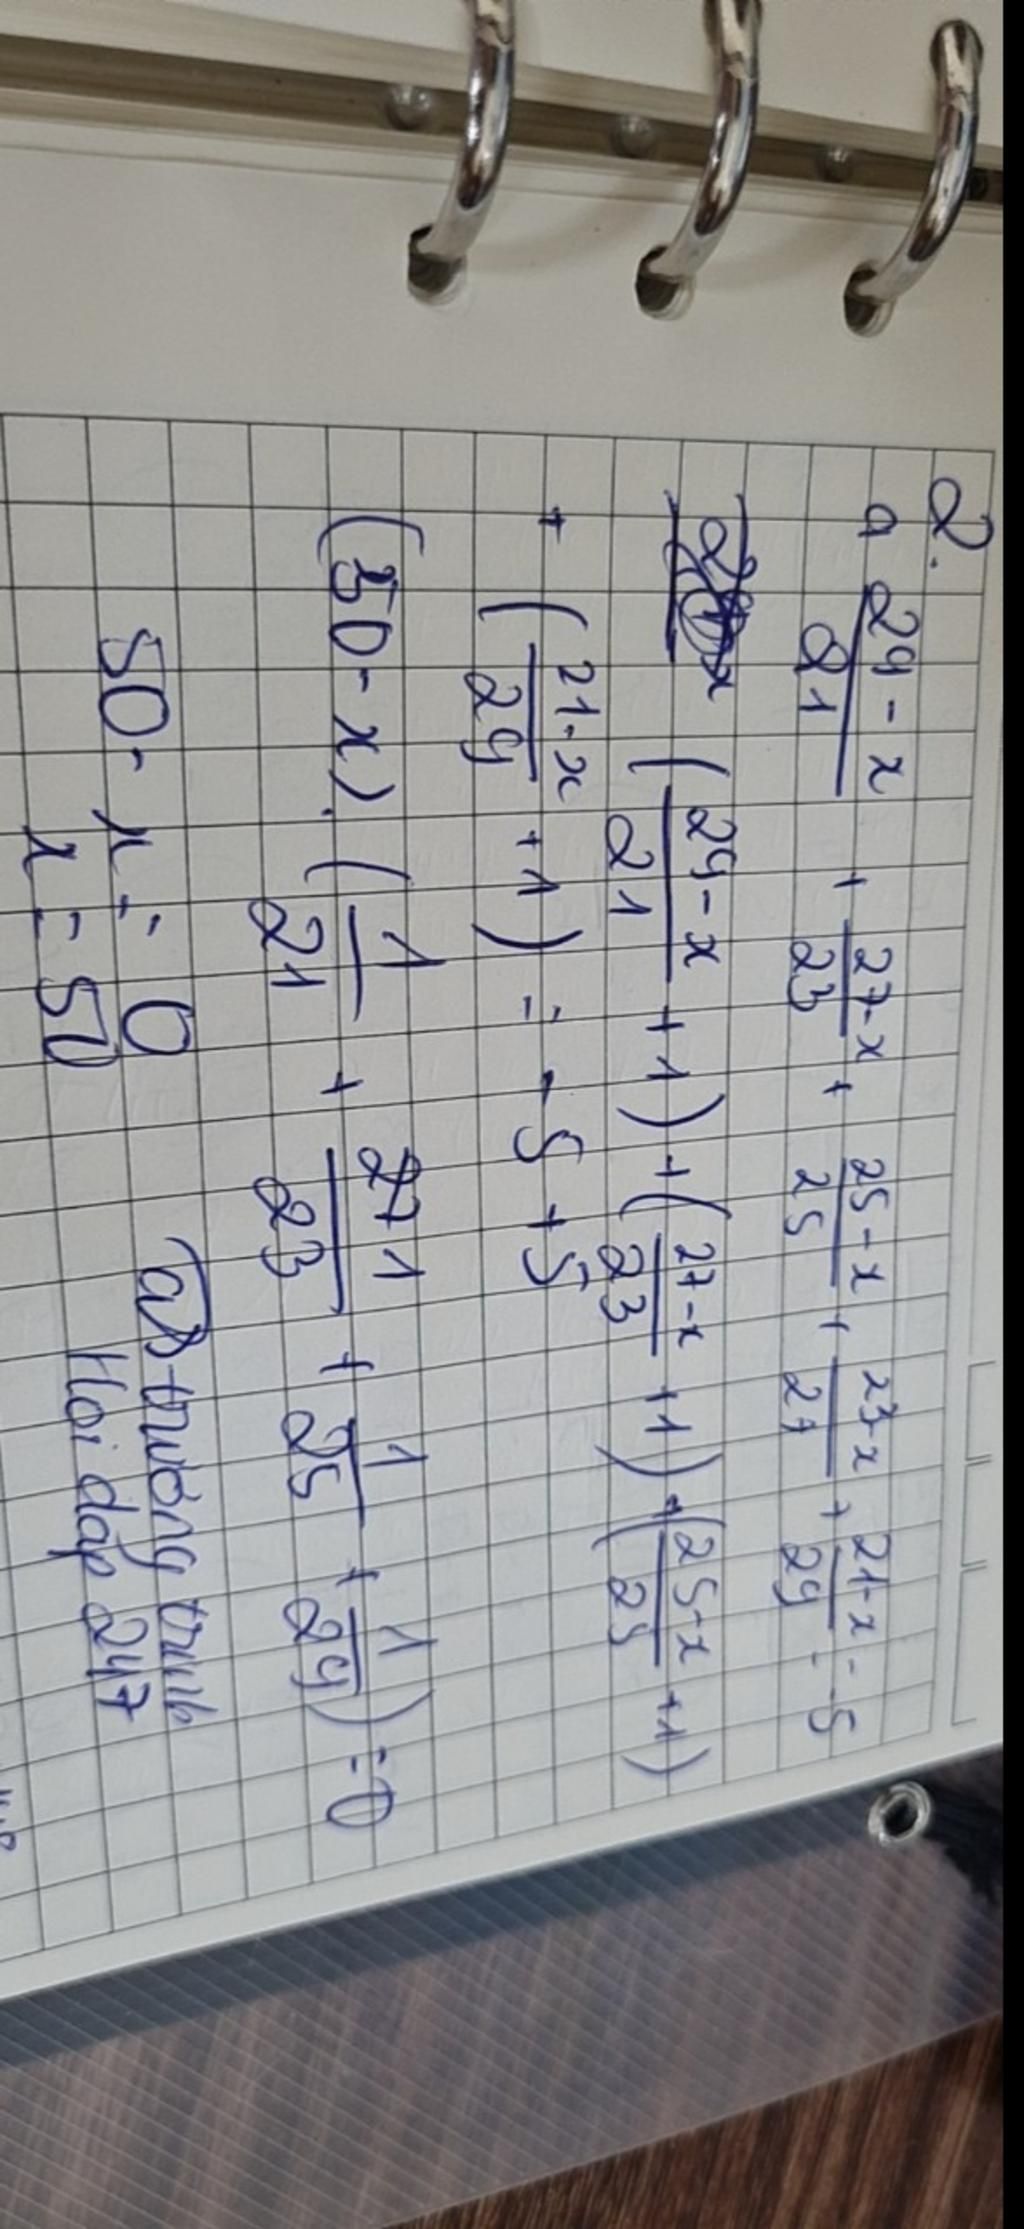 2.
a 29-x/21 + 27-x/23 + 25-x/25 + 23-x/27 + 21-x/29 = -5
(29-x/21 +1) + (27-x/23 +1) + (25-x/25 +1)
+ (21-x/29 +1) = -5 +5
(50-x).(1/21 + 1/23 + 1/25 + 1/29) = 0
50-x = 0
x = 50
trương trinh
Hoi dap 247